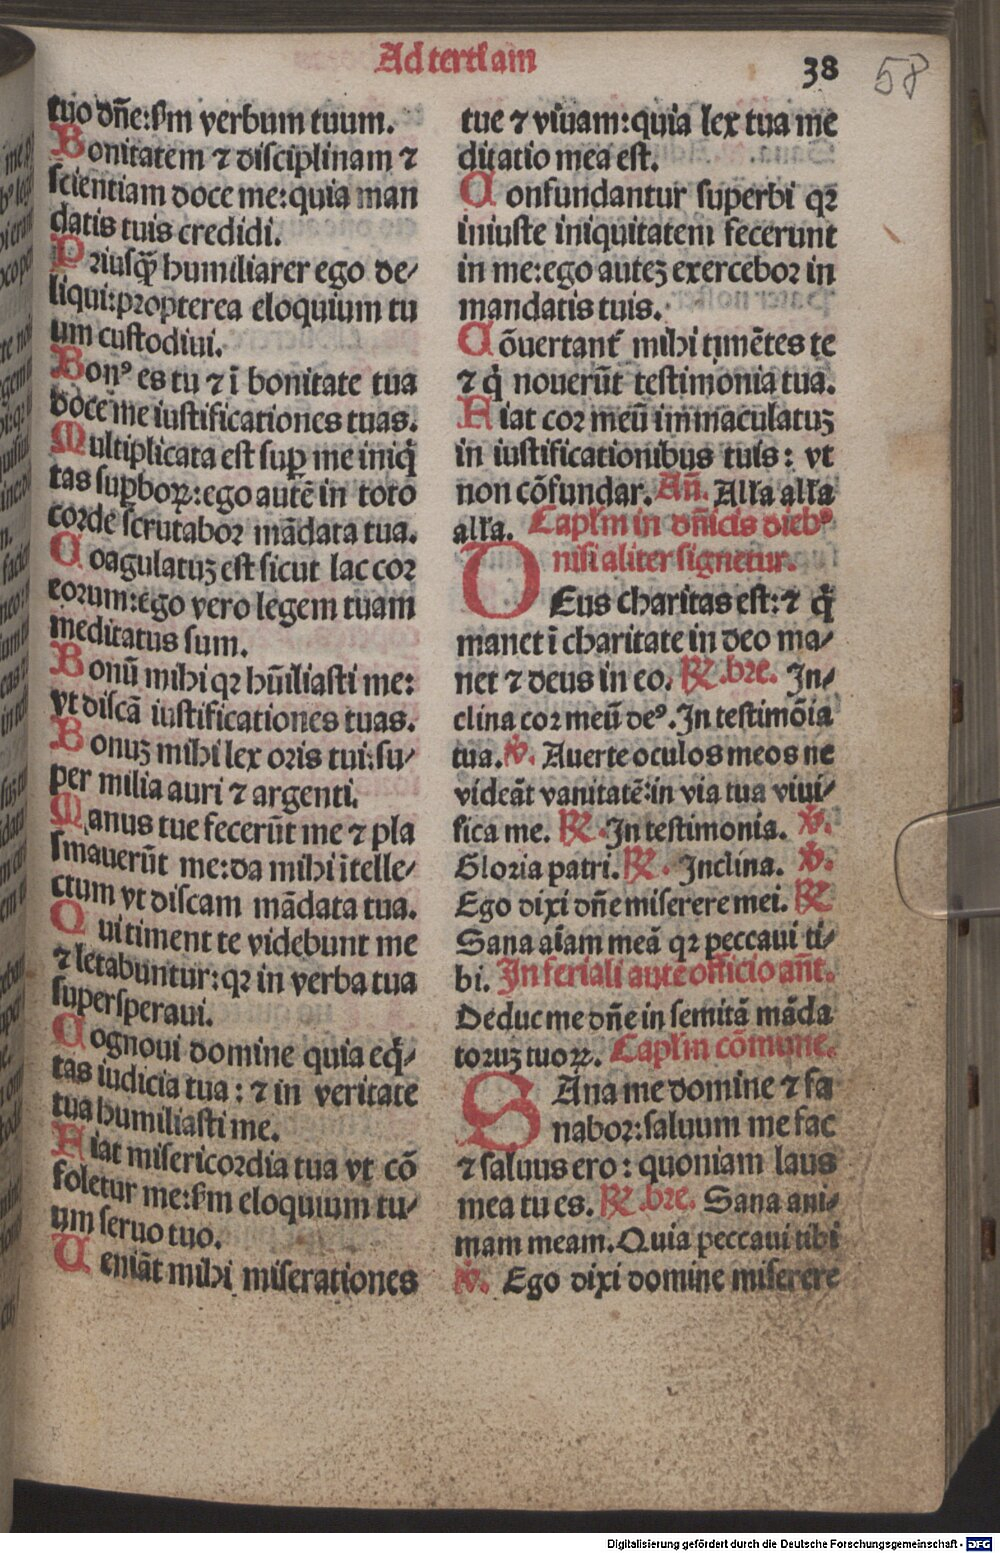 Ad tertiam
38
58
tuo dn̄e: ẜm verbum tuum.
Bonitatem ⁊ disciplinam ⁊
scientiam doce me: quia man
datis tuis credidi.
Priusq̄ humiliarer ego de/
liqui: propterea eloquium tu
um custodiui.
Bonꝰ es tu ⁊ ī bonitate tua
doce me iustificationes tuas.
Multiplicata est suꝑ me iniq̄
tas suꝑboꝝ: ego autē in toto
corde scrutabor mādata tua.
Coagulatuȝ est sicut lac cor
eorum: ego vero legem tuam
meditatus sum.
Bonū mihi qꝛ hūiliasti me:
vt discā iustificationes tuas.
Bonuȝ mihi lex oris tui: su/
per milia auri ⁊ argenti.
Manus tue fecerūt me ⁊ pla
smauerūt me: da mihi ītelle/
ctum vt discam mādata tua.
Qui timent te videbunt me
⁊ letabuntur: qꝛ in verba tua
supersperaui.
Cognoui domine quia eq̄/
tas iudicia tua: ⁊ in veritate
tua humiliasti me.
Fiat misericordia tua vt cō
soletur me: ẜm eloquium tu/
um seruo tuo.
Veniāt mihi miserationes
tue ⁊ viuam: quia lex tua me
ditatio mea est.
Confundantur superbi qꝛ
iniuste iniquitatem fecerunt
in me: ego auteȝ exercebor in
mandatis tuis.
Cōuertant᷑ mihi timētes te
⁊ q̄ nouerūt testimonia tua.
Fiat cor meū immaculatuȝ
in iustificationibus tuis: vt
non cōfundar. An̄. Alla alla
alla. Capl'm in dn̄icis diebꝰ
nisi aliter signetur.
DEus charitas est: ⁊ q̄
manet ī charitate in deo ma/
net ⁊ deus in eo. ℞. bre. In/
clina cor meū deꝰ. In testimōia
tua. ℣. Auerte oculos meos ne
videāt vanitatē: in via tua viui/
fica me. ℞. In testimonia. ℣.
Gloria patri. ℞. Inclina. ℣.
Ego dixi dn̄e miserere mei. ℞
Sana aīam meā qꝛ peccaui ti/
bi. In feriali aute officio an̄t.
Deduc me dn̄e in semitā māda
toruȝ tuoꝝ. Capl'm cōmune.
SAna me domine ⁊ sa
nabor: saluum me fac
⁊ saluus ero: quoniam laus
mea tu es. ℞. bre. Sana ani/
mam meam. Quia peccaui tibi
℣. Ego dixi domine miserere
Digitalisierung gefördert durch die Deutsche Forschungsgemeinschaft - DFG